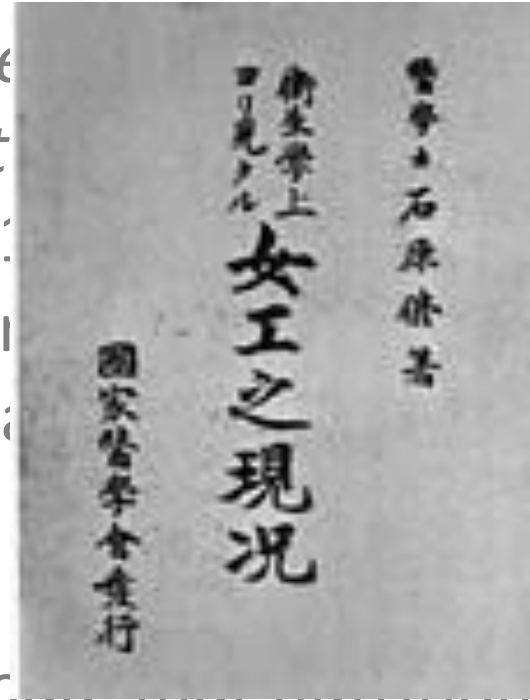 醫學士石原修著
衞生學上
ヨリ見タル
女工之現況
國家醫學會發行